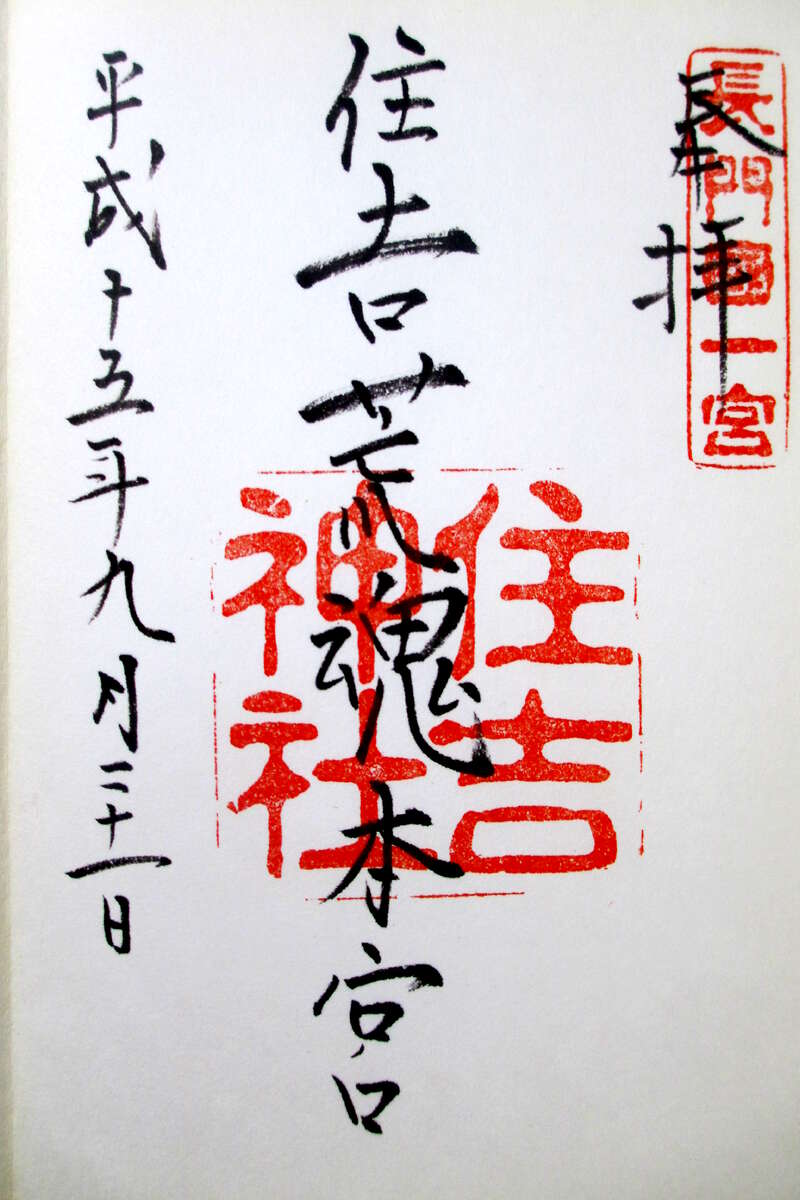 奉拝
長門國一宮
住吉荒魂本宮
住吉
神社
平成十五年九月二十一日